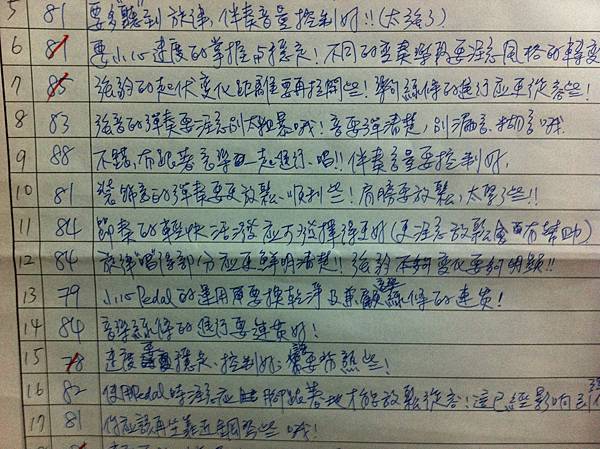 5 81 要多"聽"到旋律,伴奏音量控制好!!(太強了)
6 81 要小心速度的掌握與穩定!不同的變奏學段要注意風格的轉變
7 85 強弱的起伏变化距離要再拉開些!樂句線條的進行应更從容些!
8 83 強音的弹奏要注意別太粗暴哦!音要弹清楚,別漏音、糊音哦.
9 88 不錯,有跟著音樂一起進行、唱!!伴奏音量要控制好.
10 81 裝飾音的弹奏要更放鬆、順利些!肩膀要放鬆,太緊了些!!
11 84 節奏的輕快活潑应可發揮得更好(更注意放鬆會有幫助)
12 84 旋律唱得部分应更鮮明清楚!!強弱不夠变化要夠明顯!!
13 79 小心Pedal的運用要換乾淨及兼顧音樂線條的連貫!
14 84 音樂線條的進行要連貫好!
15 78 速度要穩定、控制好.譜要背熟些!
16 82 使用Pedal時注意应腳跟著地才能放鬆從容!這已經影響到
17 81 你应該再坐靠近鋼琴些哦!
18